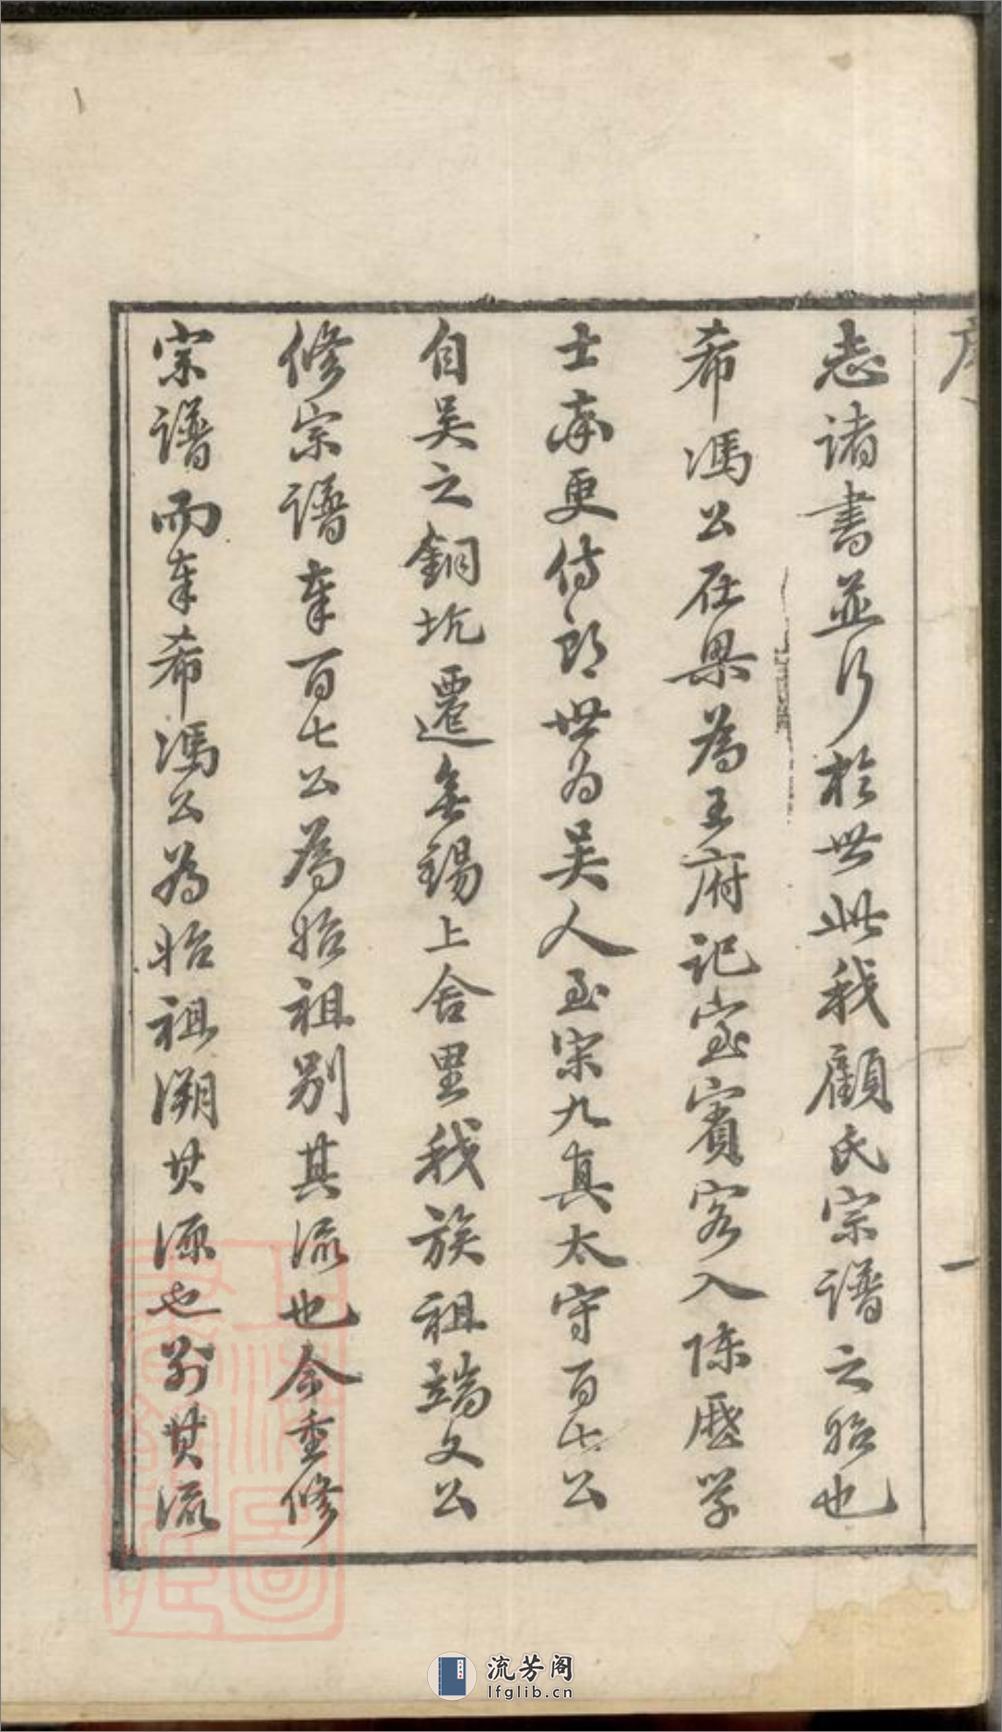 序
一
志諸書並行於世此我顧氏宗譜之始也
希馮公在梁為王府記室賓客入陳歷學
士兼更侍郎世為吳人至宋九真太守百七公
自吳之銅坑遷無錫上舍里我族祖端文公
修宗譜奉百七公為始祖別其流也今重修
宗譜而奉希馮公為始祖溯其源也別其流
流芳阁
lfglib.cn